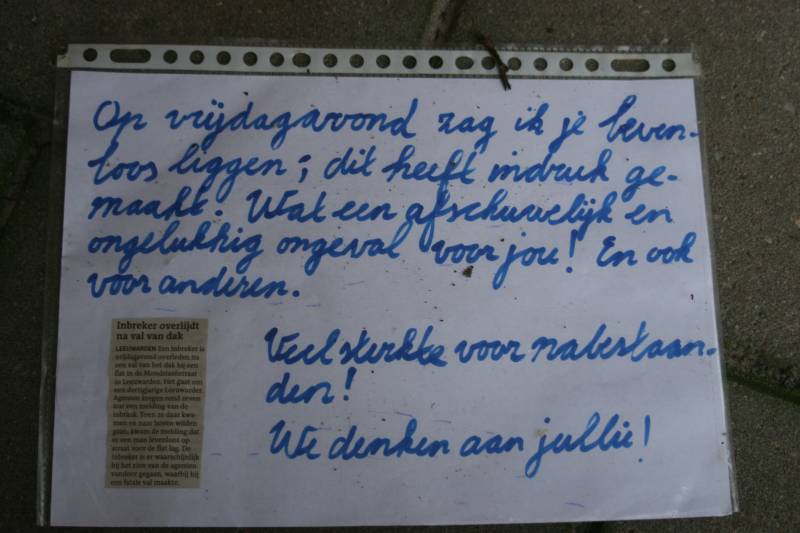 Op vrijdagavond zag ik je leven-
loos liggen; dit heeft indruk ge-
maakt. Wat een afschuwelijk en
ongelukkig ongeval voor jou! En ook
voor anderen.
Veel sterkte voor nabestaan-
den!
We denken aan jullie!
Inbreker overlijdt
na val van dak
LEEUWARDEN Een inbreker is
vrijdagavond overleden na
een val van het dak bij een
flat in de
in Leeuwarden. Het gaat om
een dertigjarige Leeuwarder.
Agenten kregen rond zeven
uur een melding van de
inbraak. Toen ze daar kwa-
men en naar boven wilden
gaan, kwam de melding dat
er een man levenloos op
straat voor de flat lag. De
inbreker is er waarschijnlijk
bij het zien van de agenten
vandoor gegaan, waarbij hij
een fatale val maakte.